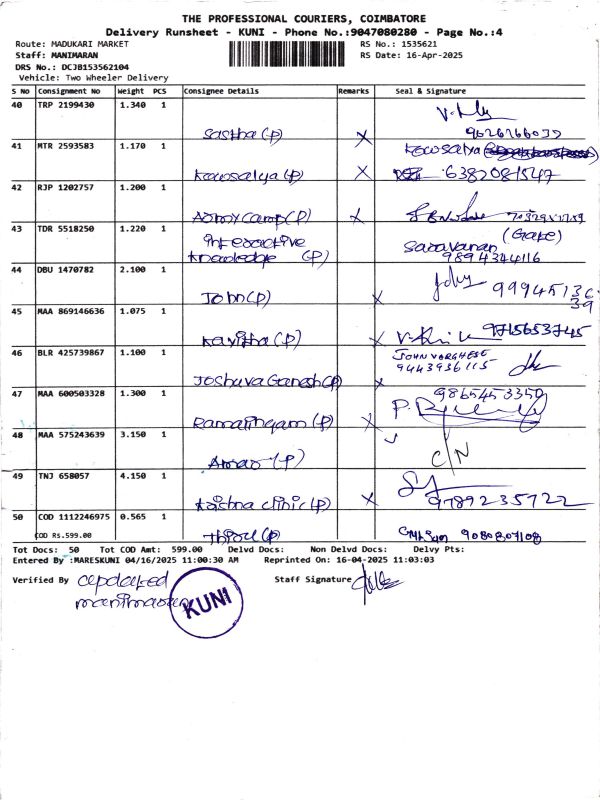 THE PROFESSIONAL COURIERS, COIMBATORE
Delivery Runsheet - KUNI - Phone No.:9047080280 - Page No.:4
Route: MADUKARI MARKET RS No.: 1535621
Staff: MANIMARAN RS Date: 16-Apr-2025
DRS No.: DCJB153562104
Vehicle: Two Wheeler Delivery
S No Consignment No Weight PCS Consignee Details Remarks Seal & Signature
40 TRP 2199430 1.340 1
Sastha (P) X
41 MTR 2593583 1.170 1 Kowsalya
Kowsalya (P) X 6382081547
42 RJP 1202757 1.200 1
Army Camp (P) X
43 TDR 5518250 1.220 1 interactive (Gate)
knowledge (P) Saravanan
9894344116
44 DBU 1470782 2.100 1
John (P) X 99945136
39
45 MAA 869146636 1.075 1
Kavitha (P) X 9715653745
46 BLR 425739867 1.100 1 JOHN VARGHESE
9443936115
Joshuva Ganesh (P) X
47 MAA 600503328 1.300 1 9865453350
Ramalingam (P) X
48 MAA 575243639 3.150 1
(P) C/N
49 TNJ 658057 4.150 1
Krishna clinic (P) X 9789235722
50 COD 1112246975 0.565 1
COD Rs.599.00 (P) 9080807108
Tot Docs: 50 Tot COD Amt: 599.00 Delvd Docs: Non Delvd Docs: Delvy Pts:
Entered By :MARESKUNI 04/16/2025 11:00:30 AM Reprinted On: 16-04-2025 11:03:03
Verified By updated Staff Signature
manimaran KUNI